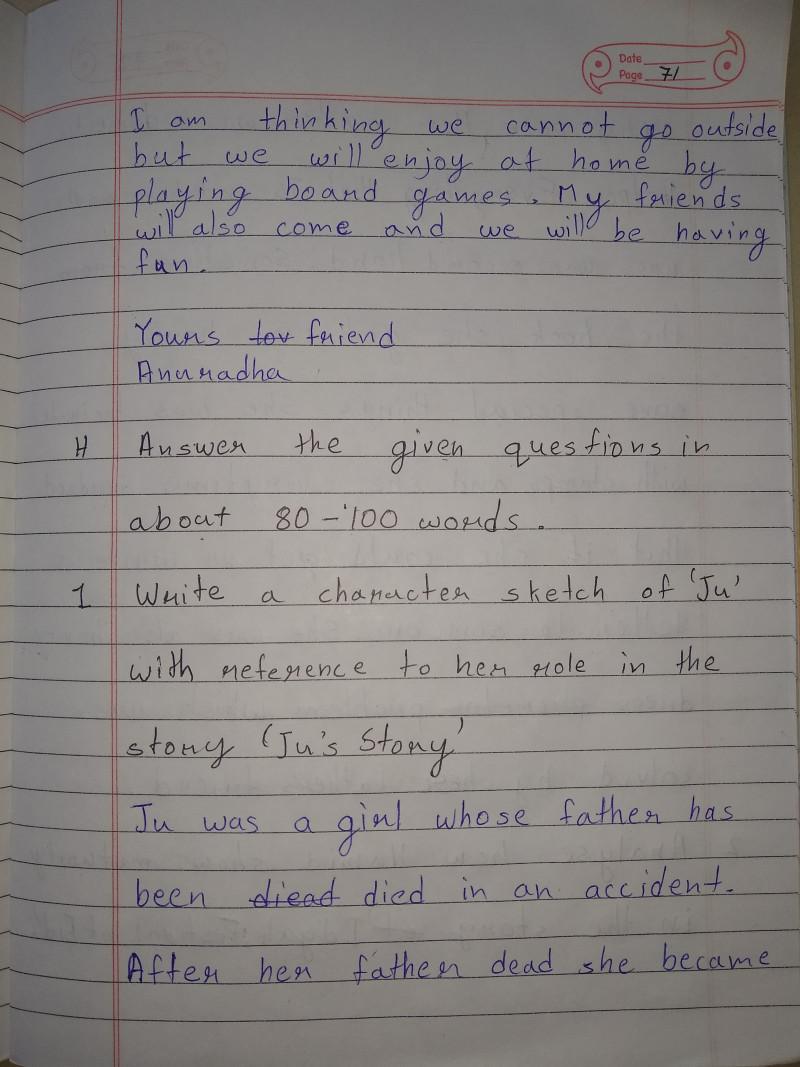 Date
Page 71
I am thinking we cannot go outside
but we will enjoy at home by
playing board games. My friends
will also come and we will be having
fun.
Yours friend
Anuradha
H Answer the given questions in
about 80-100 words.
1 Write a character sketch of 'Ju'
with reference to her role in the
story 'Ju's Story'
Ju was a girl whose father has
been died in an accident.
After her father dead she became